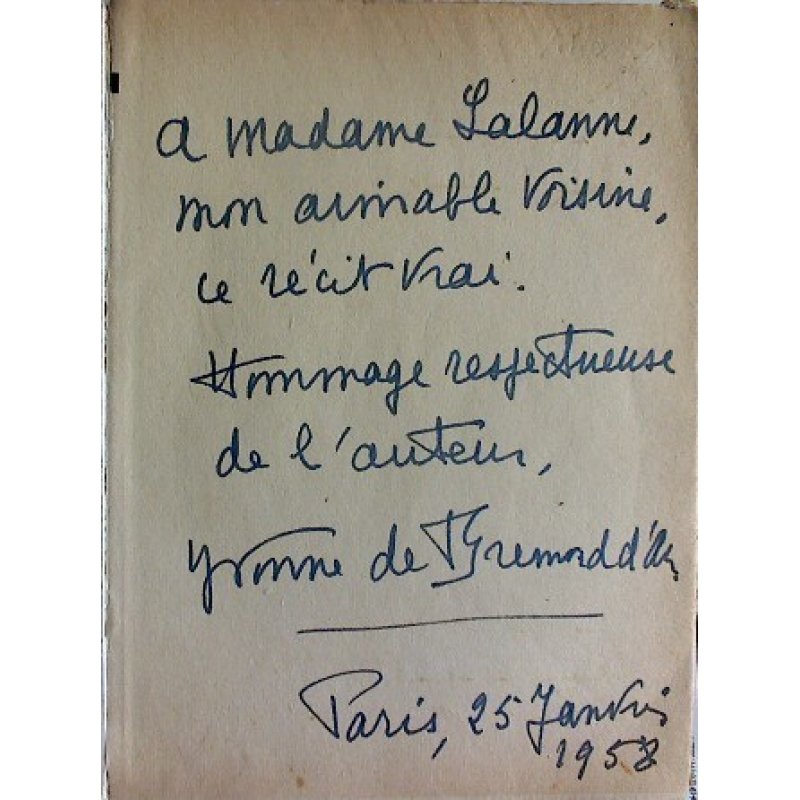 A Madame Lalanne,
mon aimable voisine,
ce récit vrai.
Hommage respectueuse
de l'auteur,
Yvonne de Bremond d'Ars
Paris, 25 Janvier
1958